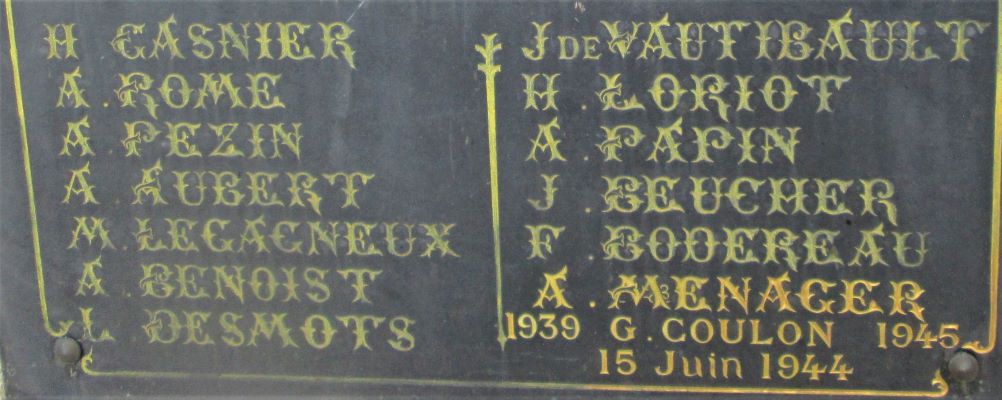 H CASNIER
A. ROME
A. PEZIN
A. AUBERT
M. LEGAGNEUX
A. BENOIST
L. DESMOTS
J DE VAUTIBAULT
H. LORIOT
A. PAPIN
J. BEUCHER
F. GODEREAU
A. MENAGER
1939 G. COULON 1945
15 Juin 1944